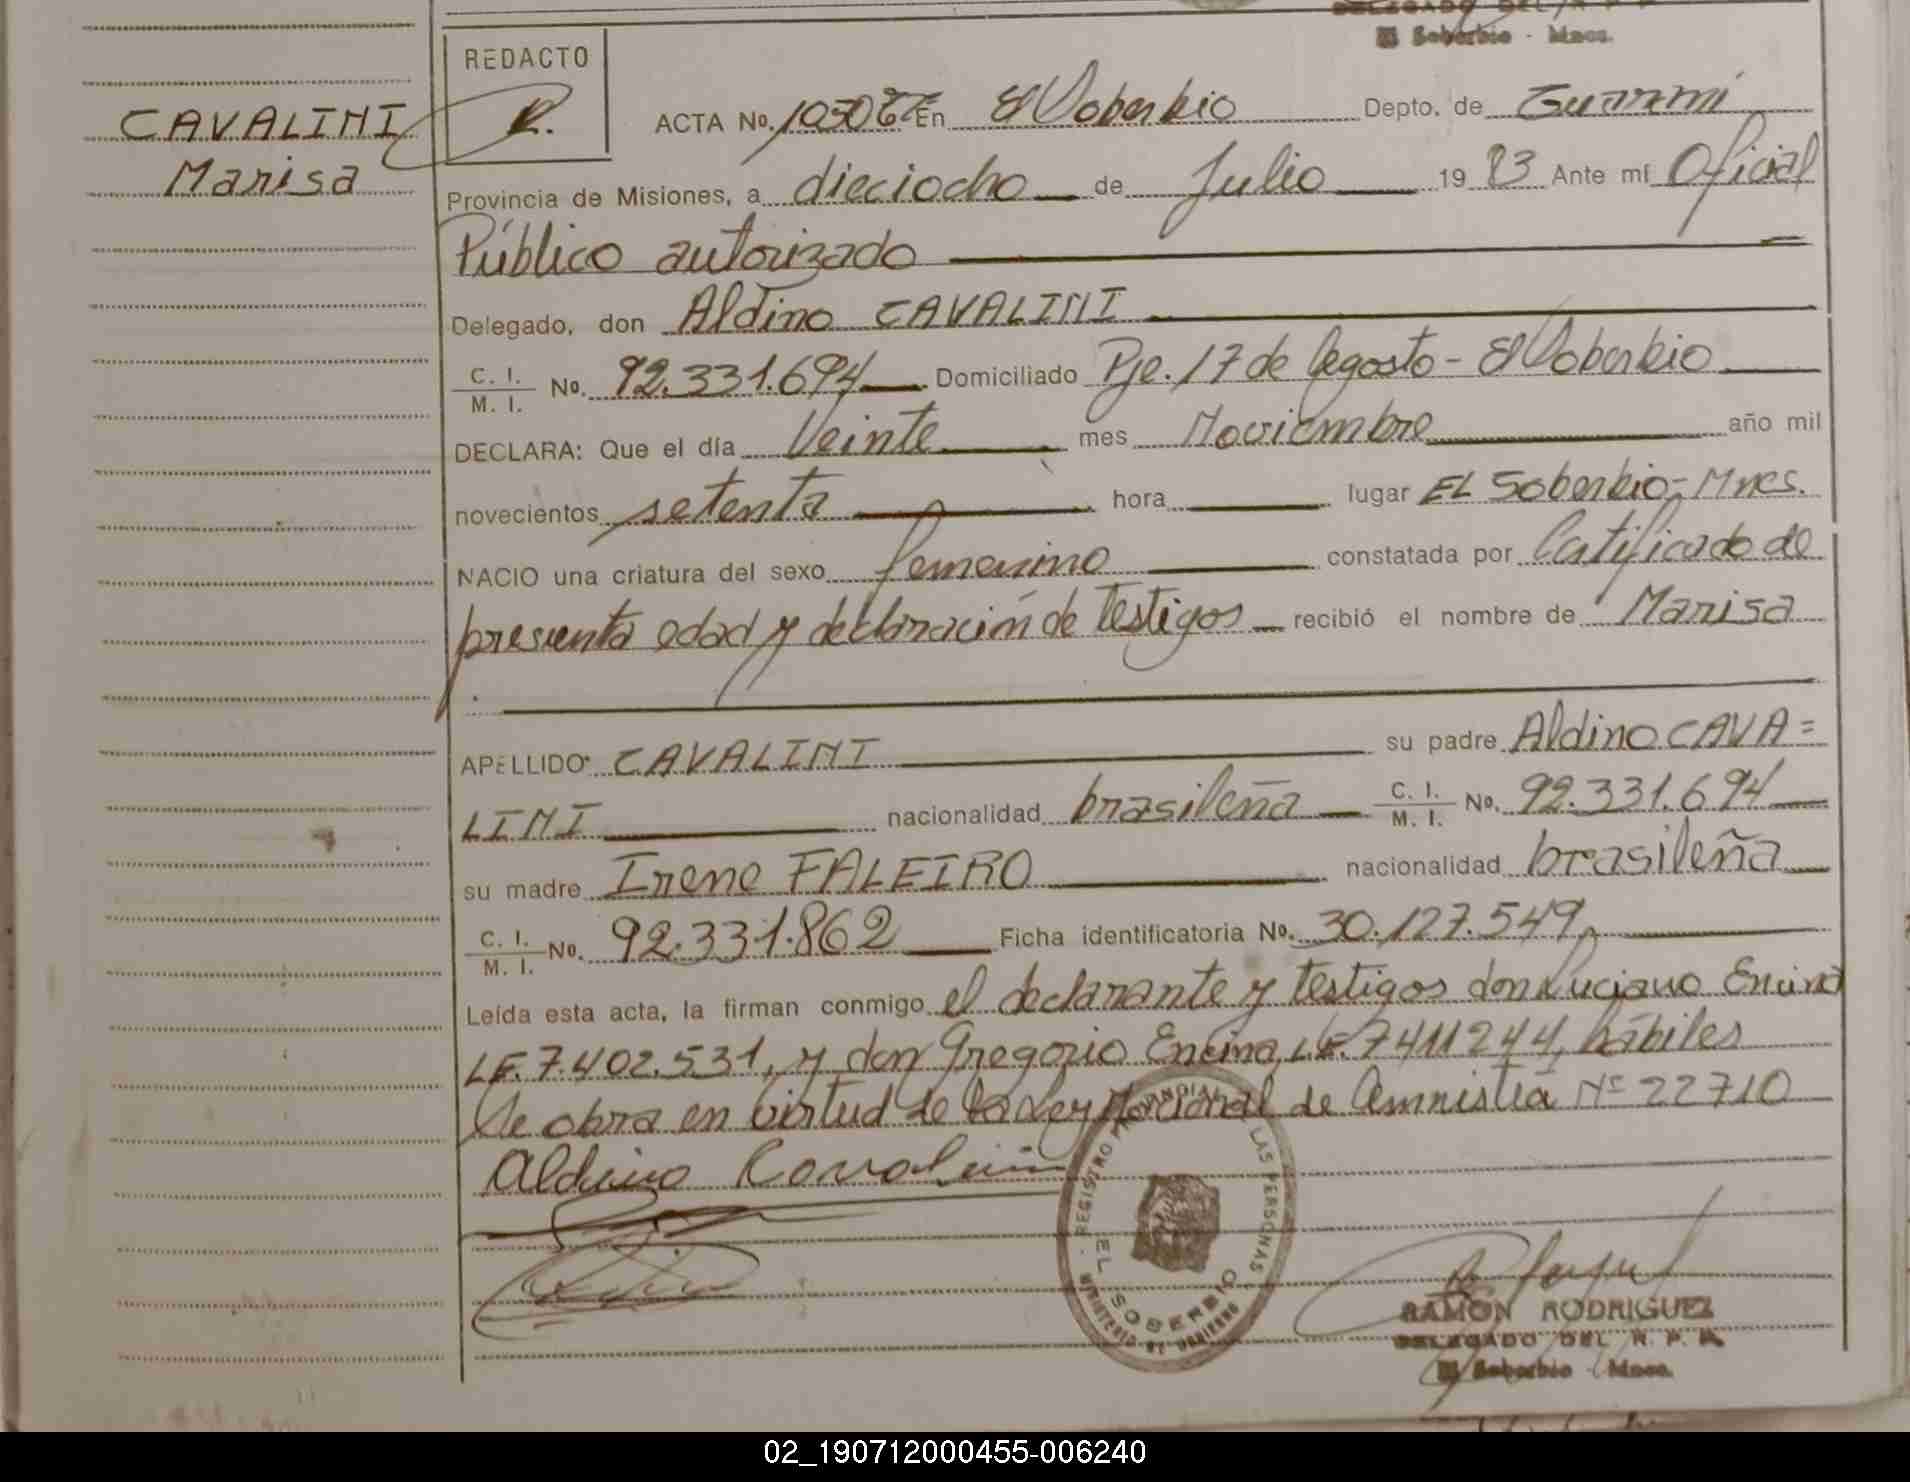 DELEGADO DEL R. P. P.
El Soberbio - Mnes.
REDACTO
R.
CAVALINI
Marisa
ACTA No. 1050 En El Soberbio Depto. de Guaraní
Provincia de Misiones, a dieciocho de Julio 1983 Ante mí Oficial
Público autorizado
Delegado, don Aldino CAVALINI
C. I.
M. I. No. 92.331.694 Domiciliado Pje. 17 de Agosto - El Soberbio
DECLARA: Que el día Veinte mes Noviembre año mil
novecientos setenta hora lugar EL Soberbio-Mnes.
NACIO una criatura del sexo femenino constatada por Certificado de
presunta edad y declaración de testigos recibió el nombre de Marisa
APELLIDO CAVALINI su padre Aldino CAVA=
LINI nacionalidad brasileña C. I.
M. I. No. 92.331.694
su madre Irene FALEIRO nacionalidad brasileña
C. I.
M. I. No. 92.331.862 Ficha identificatoria No. 30.127.549,
Leída esta acta, la firman conmigo el declarante y testigos don Luciano Encina
LE. 7.402.531, y don Gregorio Encina LE. 7411244, hábiles
Se obra en virtud de la Ley Nacional de Amnistía Nº 22710
Aldino Cavalini
REGISTRO PROVINCIAL DE LAS PERSONAS
EL SOBERBIO
MINISTERIO DE GOBIERNO
RAMON RODRIGUEZ
DELEGADO DEL R. P. P.
El Soberbio - Mnes.
02_190712000455-006240